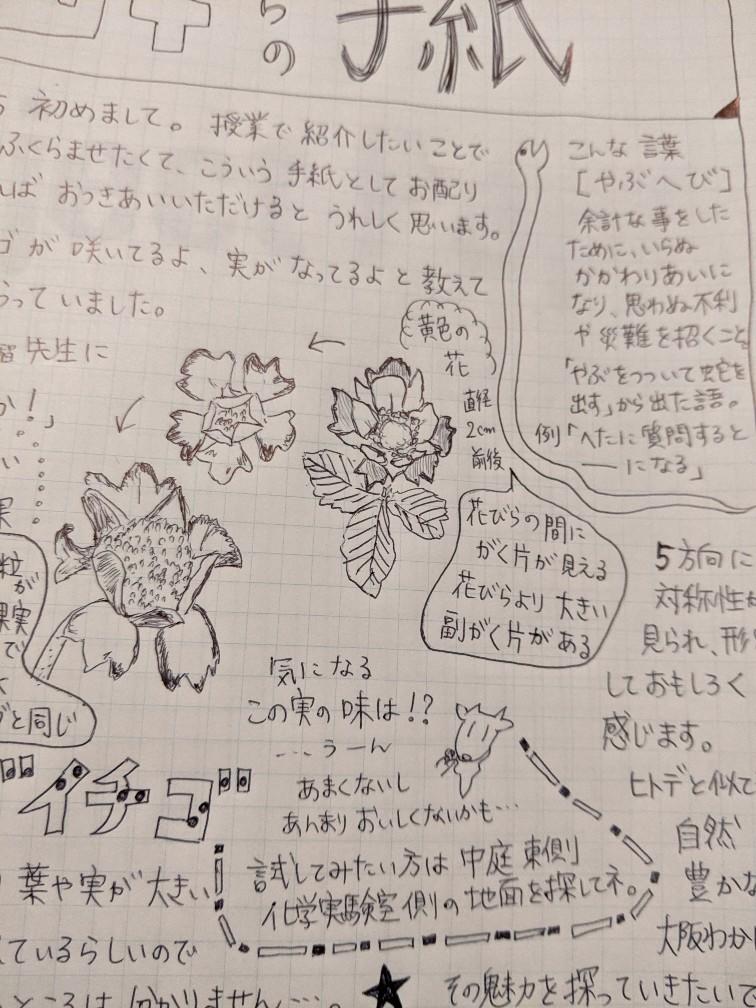 らの 手紙
初めまして。 授業で 紹介したい ことで
ふくらませたくて、こういう 手紙として お配り
ば おつきあいいただけると うれしく思います。
ゴが 咲いてるよ、実がなってるよと 教えて
らっていました。
先生に
か！」
い
こんな 言葉
[やぶへび]
余計な事をした
ために、いらぬ
かかわりあいに
なり、思わぬ不利
や災難を招くこと
「やぶをつついて蛇を
出す」から出た語。
例「へたに質問すると
―になる」
黄色の
花
直径
2cm
前後
花びらの間に
がく片が見える
花びらより 大きい
副がく片がある
粒が
果実
で
と同じ
5方向に
対称性
見られ、形
しておもしろく
感じます。
ヒトデと似て
自然
豊かな
大阪わか
気になる
この実の味は！？
…うーん
あまくないし
あんまりおいしくないかも…
試してみたい方は 中庭東側
化学実験室側の地面を探してネ。
ビイチゴ
葉や実が大きい
ているらしいので
ところは 分かりません…。
★ その魅力を探っていきたいで